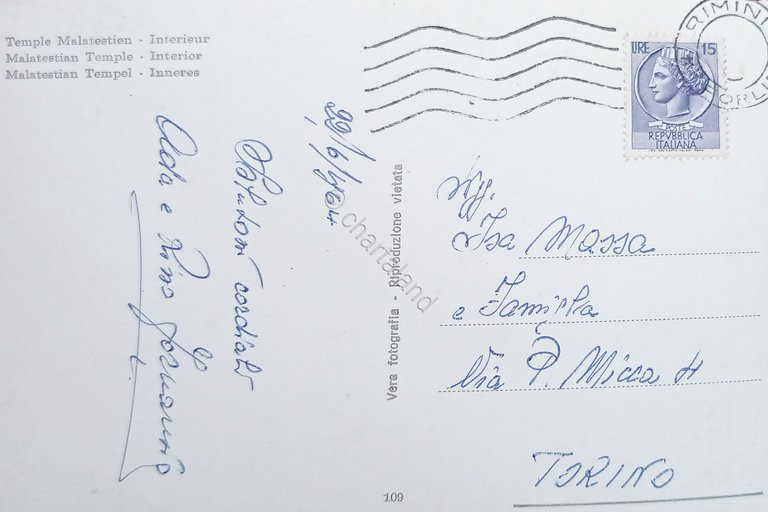 Temple Malatestien - Interieur
Malatestian Temple - Interior
Malatestian Tempel - Inneres
22/6/964
Saluti cordiali
Ada e Pino
Vera fotografia - Riproduzione vietata
chartaland
109
RIMINI
FORLI
LIRE 15
POSTE
REPVBBLICA
ITALIANA
Isa Massa
e Famiglia
Via P. Micca 4
TORINO